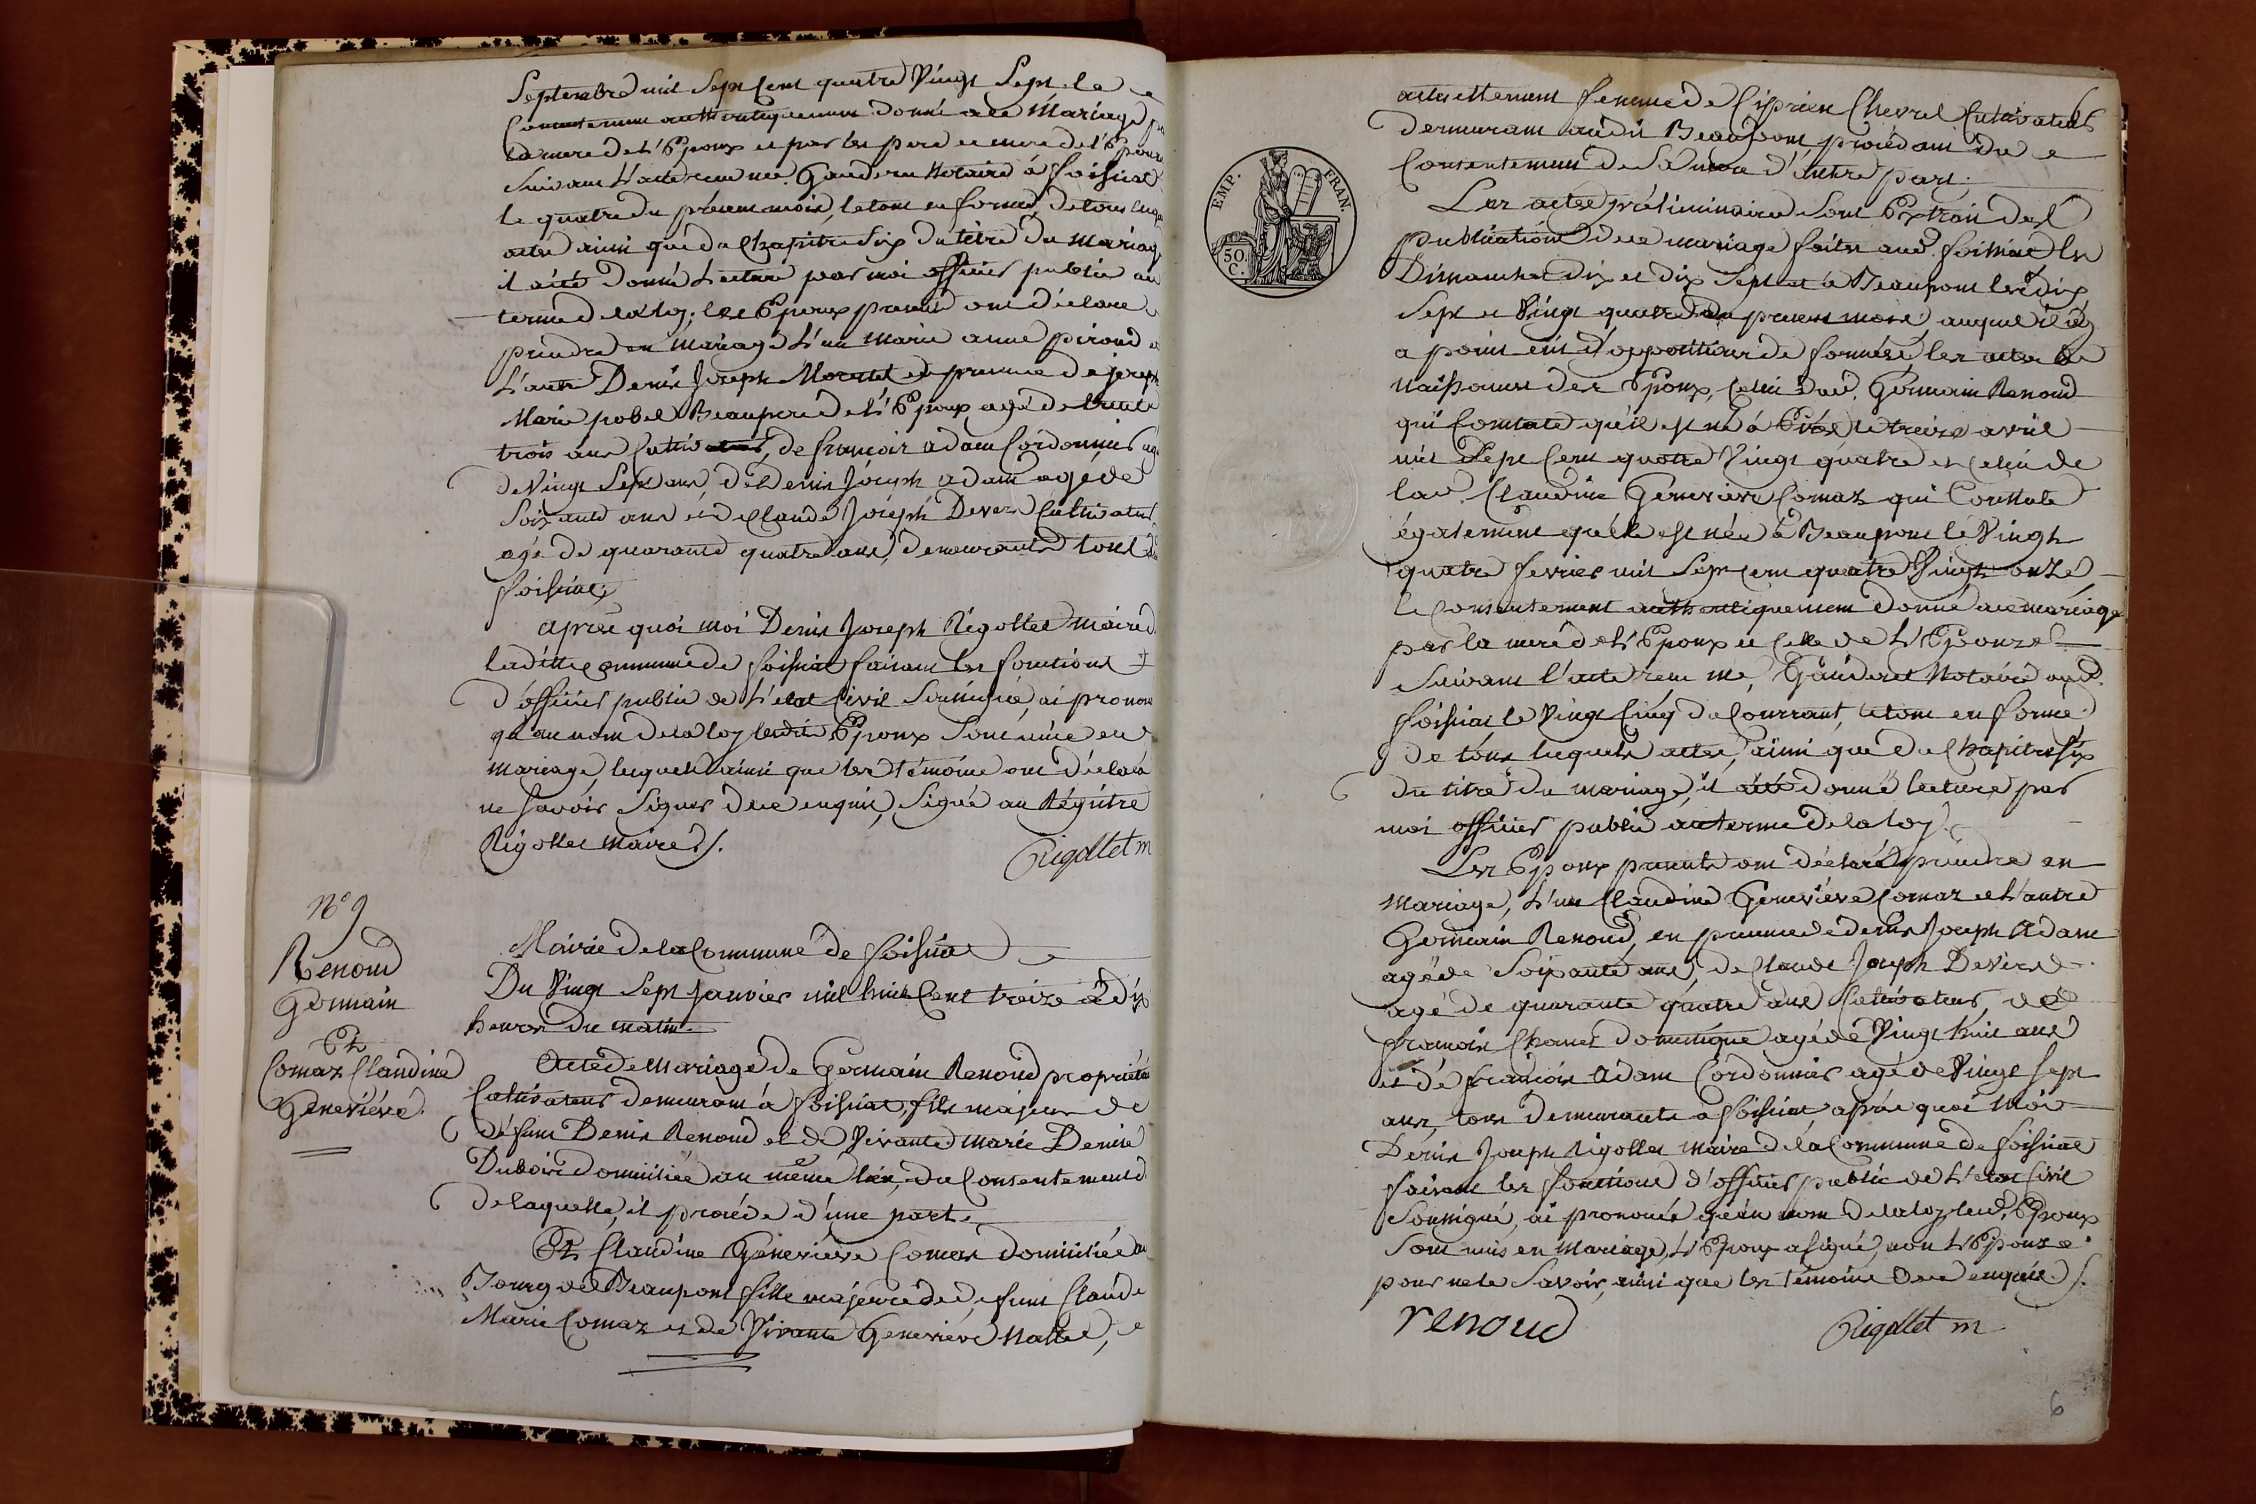 Septembre mil Sept Cent quatre Vingt Sept le
Consentement authentiquement donné a ce Mariage par
la mere de L'Epoux et par les pere et mere de l'Epouse
Suivant L'acte recu me. Gauderet Notaire à foissiat
le quatre du présent mois, le tout en forme, de tous lesquels
actes ainsi que du Chapitre Six du titre du Mariage
il a été donné Lecture par moi officier public au
terme de la Loy; les Epoux presents ont déclaré
prendre en mariage L'un Marie anne piroud et
L'autre Denis Joseph Morutel en presence de joseph
Marie pobel Beaupere de L'Epoux agé de trente
trois ans Cultivateur, de françois adam Cordonnier agé
de Vingt Sept ans, de Denis Joseph adam agé de
Soixante ans et de Claude Joseph Devers Cultivateur
agé de quarante quatre ans, demeurants tous à
foissiat;
après quoi moi Denis Joseph Rigollet maire de
la ditte Commune de foissiat faisant les fonctions
d'officier public de L'etat Civil Soussigné, ai prononcé
qu'au nom de la loy lesdits Epoux Sont unis en
mariage, lesquels ainsi que les témoins ont déclaré
ne Savoir Signer de ce enquis, Signé au Régistre
Rigollet maire ./.
Rigollet m
N° 9
Renoud
Germain
Et
Comaz Claudine
Geneviéve.
Mairie de la Commune de foissiat
Du Vingt Sept Janvier mil huit Cent treize à dix
heures du matin.
Acte de mariage de Germain Renoud propriétaire
Cultivateur demeurant à foissiat, fils majeur de
défunt Denis Renoud et de Vivante Marie Denise
Dubois domiciliée au même lieu, du Consentement
de laquelle, il procéde d'une part.
Et Claudine Genevieve Comaz domiciliée au
Bourg de Beaupont fille majeure de defunt Claude
Marie Comaz et de Vivante Geneviéve Nallet,
EMP. FRAN.
50.
C.
actuellement femme de Ciprien Chevrel Cultivateur
demeurant audit Beaupont, procédant du
Consentement de Sa mere d'autre part;
Les actes préliminaires Sont Extrait des
publications de ce mariage faites aud. foissiat les
Dimanches dix et dix Sept et à Beaupont les dix
Sept et Vingt quatre du présent mois, auquel il n'y
a point eut d'oppositions de formées, les actes de
naissances des Epoux, Celui dud. Germain Renoud
qui Constate qu'il est né à le treize avril
mil Sept Cent quatre Vingt quatre et Celui de
lad. Claudine Geneviéve Comaz qui Constate
également qu'elle est née à Beaupont le Vingt
quatre fevrier mil Sept Cent quatre Vingt onze,
le Consentement authentiquement donné a ce mariage
par la mere de L'Epoux et Celle de L'Epouse
Suivant l'acte recu me, Gauderet Notaire aud.
foissiat le Vingt Cinq du Courrant, le tout en forme
de tous lesquels actes, ainsi que du Chapitre Six
du titre du mariage, il a été donné lecture par
moi officier public au terme de la loy.
Les Epoux presents ont déclaré prendre en
Mariage, L'un Claudine Geneviéve Comaz et L'autre
Germain Renoud, en presence de denis Joseph Adam
agé de Soixante ans, de Claude Joseph Devers
agé de quarante quatre ans Cultivateurs, de
francois Charles domestique agé de Vingt huit ans
et de françois Adam Cordonnier agé de Vingt Sept
ans, tous demeurants a foissiat, après quoi Moi
Denis Joseph Rigollet maire de la Commune de foissiat
faisant les fonctions d'officier public de L'etat Civil
Soussigné, ai prononcé qu'au nom de la loy lesd. Epoux
Sont unis en Mariage, L'Epoux a signé, non L'Epouse
pour ne le Savoir, ainsi que les témoins de ce enquis. /.
renoud
Rigollet m
6